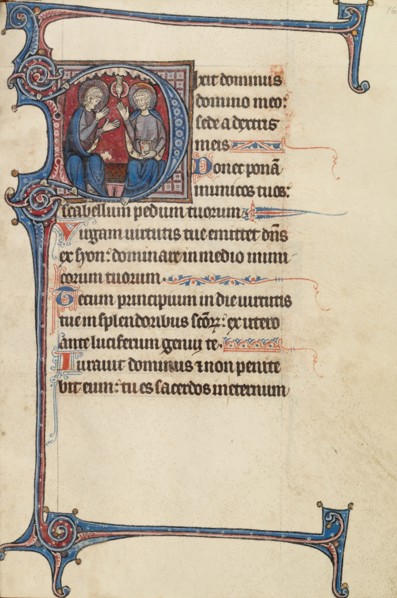 Dixit dominus
domino meo:
sede a dextris
meis
Donec ponā
inimicos tuos:
scabellum pedum tuorum
Virgam virtutis tue emittet dn̄s
ex syon: dominare in medio inimi
corum tuorum.
Tecum principium in die virtutis
tue in splendoribus scōꝝ: ex utero
ante luciferum genui te.
Iuravit dominus ⁊ non penite
bit eum: tu es sacerdos in eternum